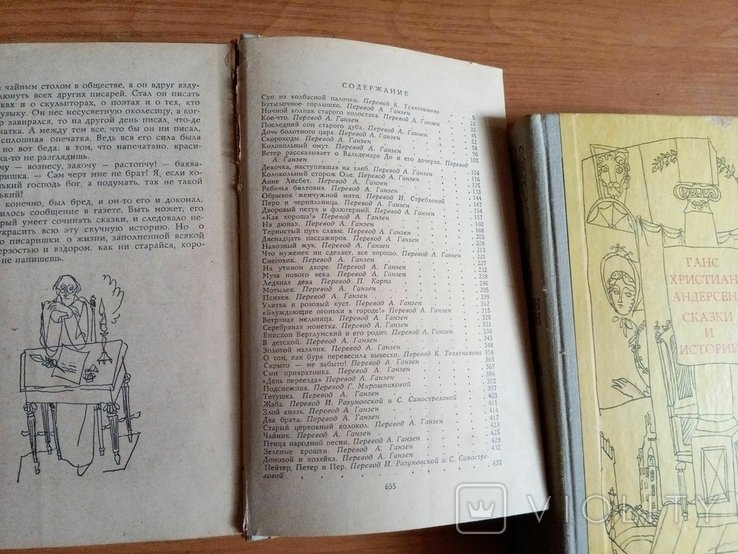 чайным столом в обществе, а он вдруг взду-
люнуть всех других писарей. Стал он писать
ках и о скульпторах, о поэтах и о тех, кто
узыку. Он нес несусветную околесицу, а ког-
завирался, то на другой день писал, что-де
чатка. А между тем все, что бы он ни писал,
сплошная опечатка. Ведь вся его сила была
но вот беда: в том, что напечатано, краси-
ка-то не разглядишь.
чу — вознесу, захочу — растопчу! — бахва-
аришка. — Сам черт мне не брат! Я, если хо-
нький господь бог, а подумать, так не такой
нький!
конечно, был бред, и он-то его и доконал.
илось сообщение в газете. Быть может, его
рый умеет сочинять сказки, и следовало не-
украсить всю эту скучную историю. Но о
о писаришки о жизни, заполненной всякой
ерзостью и вздором, как ни старайся, хоро-
не напишешь.
СОДЕРЖАНИЕ
Суп из колбасной палочки. Перевод К. Телятникова
Бутылочное горлышко. Перевод А. Ганзен 5
Ночной колпак старого холостяка. Перевод А. Ганзен
Кое-что. Перевод А. Ганзен
Последний сон старого дуба. Перевод А. Ганзен
Дочь болотного царя. Перевод А. Ганзен
Скороходы. Перевод А. Ганзен
Колокольный омут. Перевод А. Ганзен
Ветер рассказывает о Вальдемаре До и его дочерях. Перевод
А. Ганзен
Девочка, наступившая на хлеб. Перевод А. Ганзен
Колокольный сторож Оле. Перевод А. Ганзен
Анне Лисбет. Перевод А. Ганзен
Ребячья болтовня. Перевод А. Ганзен
Обрывок жемчужной нити. Перевод И. Стребловой
Перо и чернильница. Перевод А. Ганзен
Дворовый петух и флюгерный. Перевод А. Ганзен
«Как хороша!» Перевод А. Ганзен
На дюнах. Перевод А. Ганзен
Тернистый путь славы. Перевод А. Ганзен
Двенадцать пассажиров. Перевод А. Ганзен
Навозный жук. Перевод А. Ганзен
Что муженек ни сделает, все хорошо. Перевод А. Ганзен
Снеговик. Перевод А. Ганзен
На утином дворе. Перевод А. Ганзен
Муза нового века. Перевод А. Ганзен
Ледяная дева. Перевод П. Карпа 246
Мотылек. Перевод А. Ганзен 295
Психея. Перевод А. Ганзен
Улитка и розовый куст. Перевод А. Ганзен 312
«Блуждающие огоньки в городе!» Перевод А. Ганзен 315
Ветряная мельница. Перевод А. Ганзен
Серебряная монетка. Перевод А. Ганзен
Епископ Бёрглумский и его родич. Перевод А. Ганзен
В детской. Перевод А. Ганзен
Золотой мальчик. Перевод А. Ганзен
О том, как буря перевесила вывески. Перевод К. Телятникова 358
Скрыто — не забыто! Перевод А. Ганзен 363
Сын привратника. Перевод А. Ганзен 367
«День переезда» Перевод А. Ганзен 386
Подснежник. Перевод Г. Мирошниковой 392
Тетушка. Перевод А. Ганзен
Жаба. Перевод И. Разумовской и С. Самостреловой
Злой князь. Перевод А. Ганзен 411
Два брата. Перевод А. Ганзен 414
Старый церковный колокол. Перевод А. Ганзен 417
Чайник. Перевод А. Ганзен 421
Птица народной песни. Перевод А. Ганзен 425
Зеленые крошки. Перевод А. Ганзен 429
Домовой и хозяйка. Перевод А. Ганзен 432
Пейтер, Петер и Пер. Перевод И. Разумовской и С. Самостре-
ловой 437
655
ГАНС
ХРИСТИАН
АНДЕРСЕН
СКАЗКИ
И
ИСТОРИИ
VIOLITY